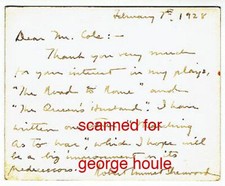 February 7th, 1928
Dear Mr. Cole:—
Thank you very much
for your interest in my plays,
"The Road to Rome" and
"The Queen's Husband". I have
written
scanned for
as to war", which I hope will
be a big improvement its
george houle
predecessors. Robert Emmet Sherwood